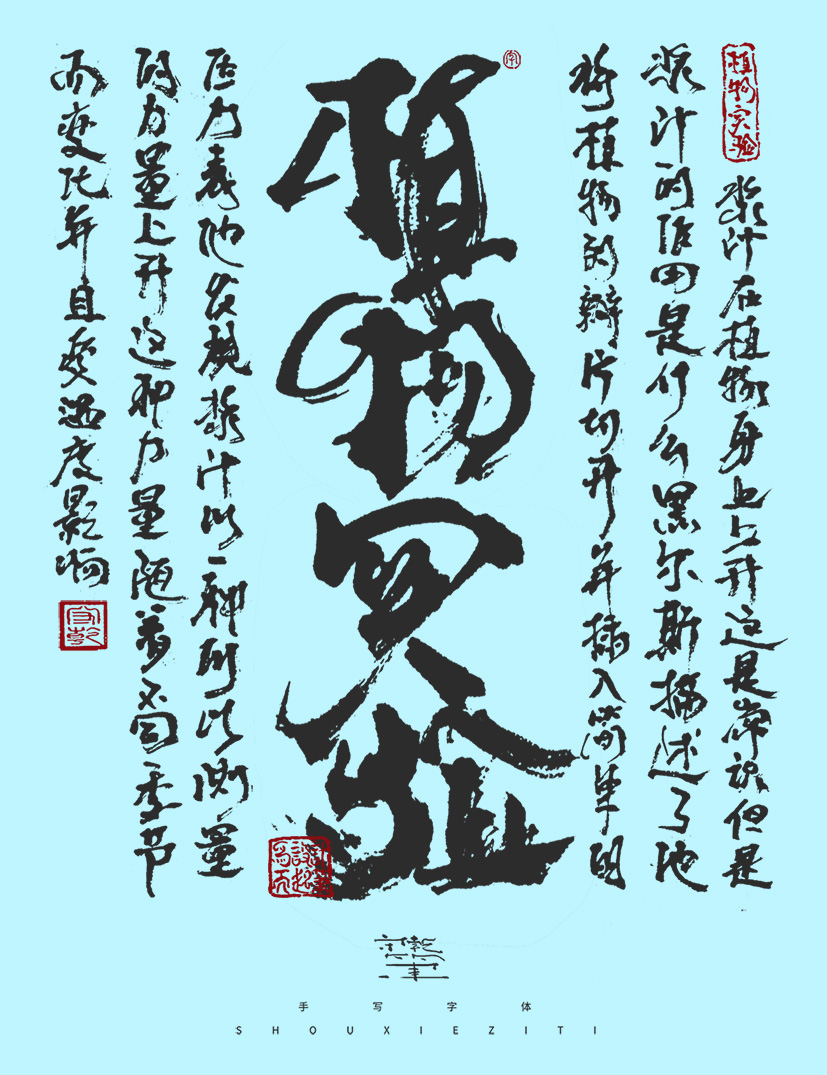 植物实验
浆汁在植物身上上升这是常识但是
浆汁的作用是什么黑尔斯描述了他
将植物的瓣片切开并插入简单的
植物实验
压力表他发现浆汁以一种所以测量
的力量上升这种力量随着不同季节
而变化并且受温度影响
手写字体
SHOUXIEZITI